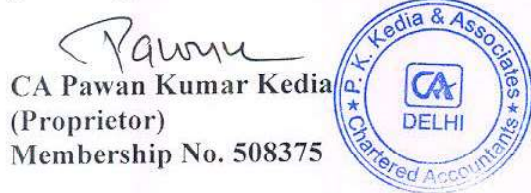 Pawan
CA Pawan Kumar Kedia
(Proprietor)
Membership No. 508375
P. K. Kedia & Associates
* Chartered Accountants *
CA
DELHI